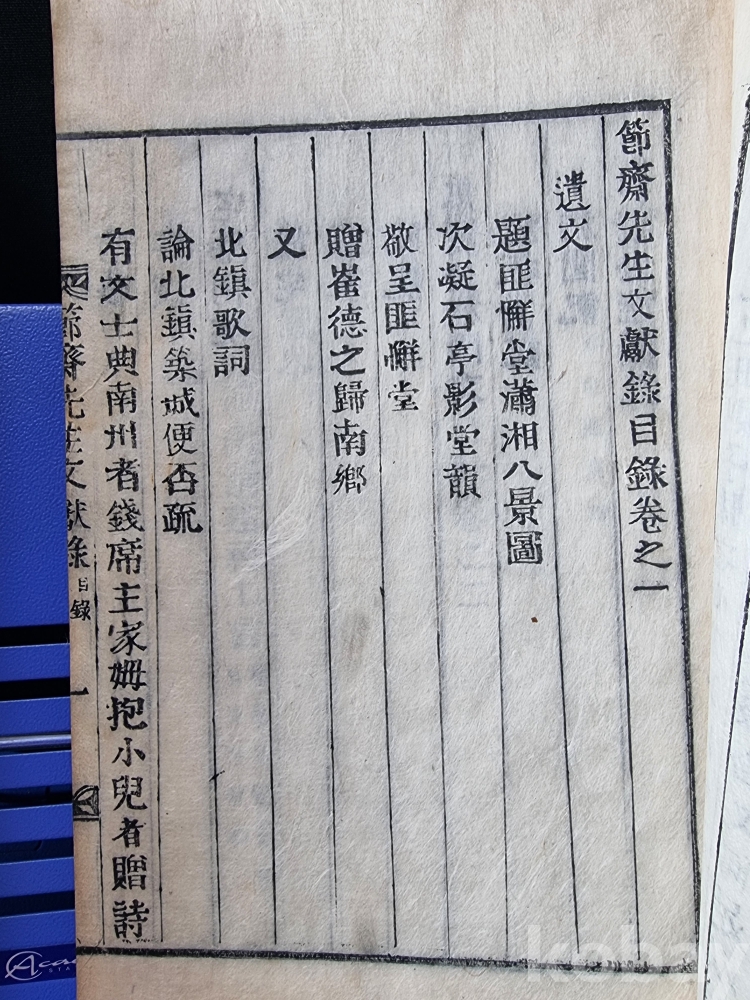 節齋先生文獻錄目錄卷之一
遺文
題匪懈堂瀟湘八景圖
次凝石亭影堂韻
敬呈匪懈堂
贈崔德之歸南鄉
又
北鎮歌詞
論北鎮築城便否疏
有文士典南州者錢席主家姆抱小兒者贈詩
節齋先生文獻錄 目錄 一
kobay